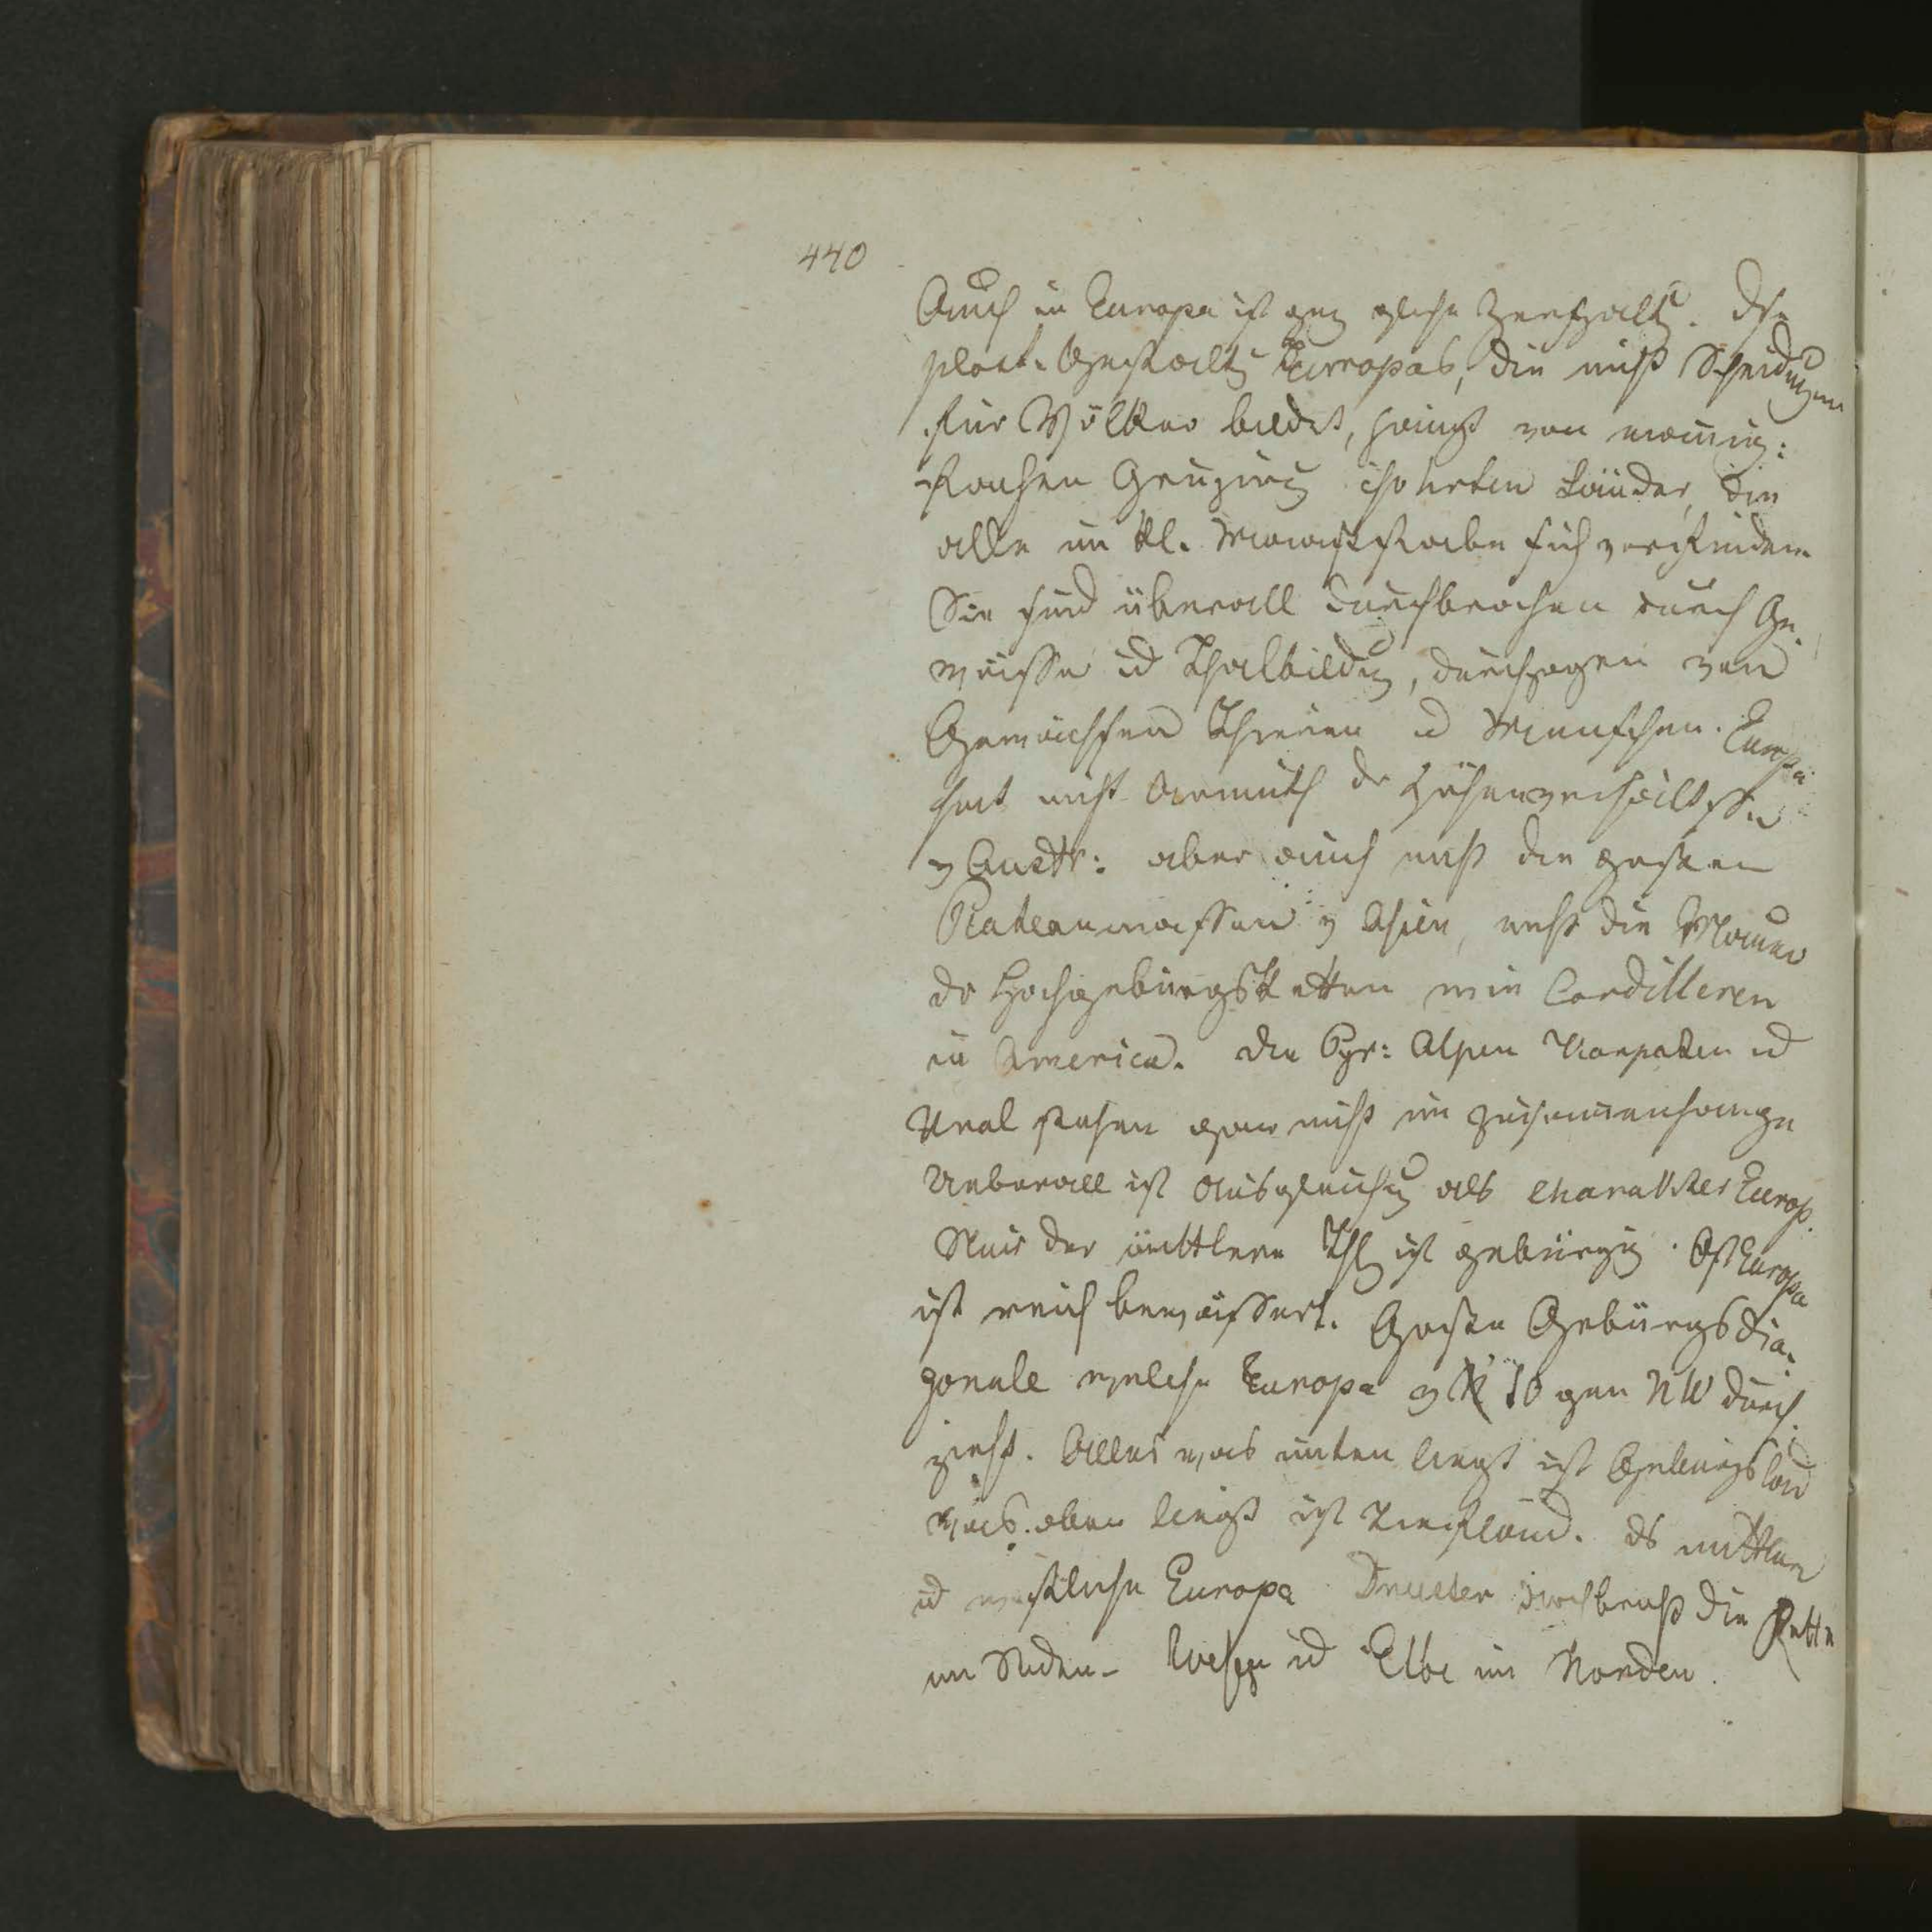 440
Auch in Europa ist ganz gleiche Zerspaltg. Die
plast. Gestaltg Europas, die nicht Scheidungen
für Völker bildet, hängt von mannig:
fachen isolirten Länder, die
alle im kl. Maaßstabe sich vorfinden
Sie sind überall durchbrochen durch Ge-
wässer ud Thalbildg, durchzogen von
Gewächsen Thieren ud Menschen. Europa
hat nicht Armuth der Höhenverhältnisse
v Austr: aber auch nicht die großen
Plateaumassen v Asien, nicht die Mauer
der Hochgebürgsketten wie Cordilleren
in America. Die Pyr: Alpen Karpaten ud
Ural stehen gar nicht im Zusammenhange
Ueberall ist Ausgleichg als Charakter Europ.
Nur der mittlere Thl ist gebürgig. Ost Europa
ist reich bewässert. Große Gebürgsdia-
gonale welche Europa v SO gen NW durch
zieht. Alles was unten liegt ist Gebürgsland
was oben liegt ist Tiefland. Ds mittlere
ud westliche Europa durchbricht die Kette
im Süden - Weser ud Elbe im Norden.